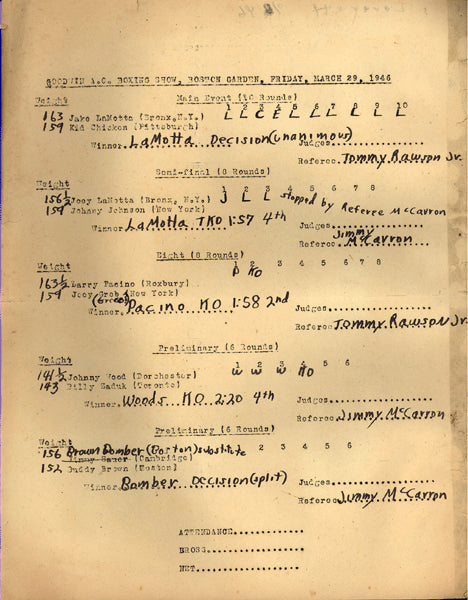 GOODWIN A.C. BOXING SHOW, BOSTON GARDEN, FRIDAY, MARCH 29, 1946
Weight Main Event (10 Rounds) 1 2 3 4 5 6 7 8 9 10
163 Jake LaMotta (Bronx, N.Y.) L L C E L L L L L L
159 Kid Chicken (Pittsburgh)
Winner. LaMotta Decision (unanimous) Judges
Referee Tommy Rawson Jr.
Semi-final (8 Rounds)
Weight 1 2 3 4 5 6 7 8
156½ Joey LaMotta (Bronx, N.Y.) J L L stopped by Referee McCarron
159 Johnny Johnson (New York)
Winner LaMotta TKO 1:57 4th Judges
Referee Jimmy McCarron
Eight (8 Rounds)
Weight 1 2 3 4 5 6 7 8
163½ Larry Pacino (Roxbury) P KO
159 Joey Greb (New York)
(Greco)
Winner. Pacino KO 1:58 2nd Judges
Referee Tommy Rawson Jr.
Preliminary (6 Rounds)
Weight 1 2 3 4 5 6
141½ Johnny Wood (Dorchester) W W W KO
143 Billy Zaduk (Toronto)
Winner. Woods KO 2:20 4th Judges
Referee Jimmy McCarron
Preliminary (6 Rounds)
Weight 2 3 4 5 6
156 Brown Bomber (Boston) substitute
Sauer (Cambridge)
152 Buddy Brown (Boston)
Winner. Bomber Decision (split) Judges
Referee Jimmy McCarron
ATTENDANCE
GROSS
NET